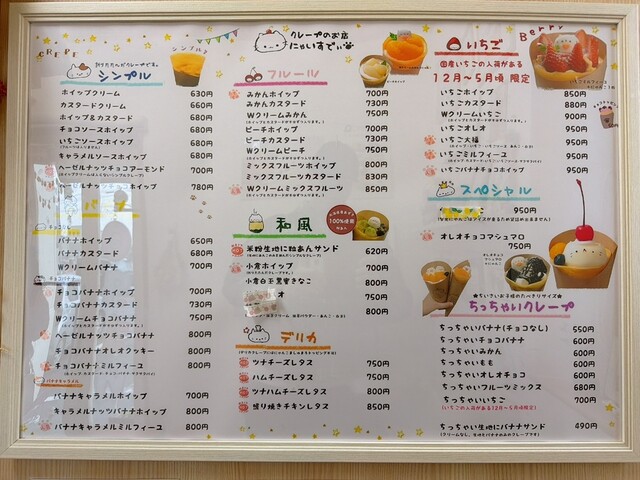 CREPE
折りたたんだクレープです。
シンプル
シンプル♪
ホイップクリーム 630円
カスタードクリーム 660円
ホイップ&カスタード 680円
チョコソースホイップ 680円
いちごソースホイップ 680円
キャラメルソースホイップ 680円
ヘーゼルナッツチョコアーモンド 700円
ヘーゼルナッツチョコホイップ 780円
バナナ
チョコなし
バナナホイップ 650円
バナナカスタード 680円
Wクリームバナナ 700円
チョコバナナホイップ 700円
チョコバナナカスタード 730円
Wクリームチョコバナナ 750円
ヘーゼルナッツチョコバナナ 800円
チョコバナナオレオクッキー 800円
チョコバナナミルフィーユ 800円
バナナキャラメル
バナナキャラメルホイップ 700円
キャラメルナッツバナナホイップ 800円
バナナキャラメルミルフィーユ 800円
クレープのお店
にゃいすでぃ
フルーツ
みかんホイップ 700円
みかんカスタード 730円
Wクリームみかん 750円
ピーチホイップ 700円
ピーチカスタード 730円
Wクリームピーチ 750円
ミックスフルーツホイップ 800円
ミックスフルーツカスタード 830円
Wクリームミックスフルーツ 850円
和風
100%使用
米粉生地に粒あんサンド 620円
小倉ホイップ 700円
小倉白玉黒蜜きなこ 800円
オ 750円
800円
デリカ
ツナチーズレタス 750円
ハムチーズレタス 750円
ツナハムチーズレタス 800円
照り焼きチキンレタス 850円
いちご
Berry
国産いちごの入荷がある
12月~5月頃 限定
いちごホイップ 850円
いちごカスタード 880円
Wクリームいちご 900円
いちごオレオ 950円
いちご大福 950円
いちごミルフィーユ 950円
いちごバナナチョコホイップ 950円
スペシャル
950円
オレオチョコマシュマロ
750円
★ちいさいお子様のたべきりサイズ★
ちっちゃいクレープ
ちっちゃいバナナ(チョコなし) 550円
ちっちゃいチョコバナナ 600円
ちっちゃいみかん 600円
ちっちゃいもも 600円
ちっちゃいオレオチョコ 600円
ちっちゃいフルーツミックス 680円
ちっちゃいいちご 700円
(いちごの入荷がある12月~5月頃限定)
ちっちゃい生地にバナナサンド 490円
(クリームなし、生地とバナナのみのクレープです)